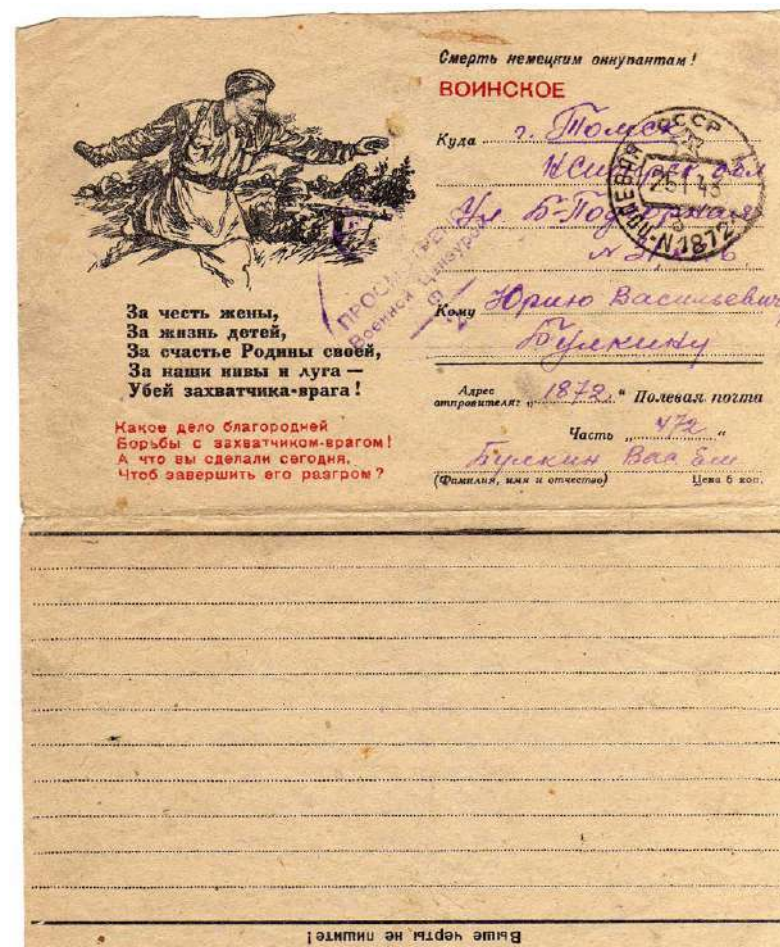 Смерть немецким оккупантам!
ВОИНСКОЕ
Куда г. Томск
Н Сибирск обл
Ул. Б-Подгорная
N
Кому Юрию Васильевичу
Булкину
Адрес отправителя: „1872“ Полевая почта
Часть „472“
Булкин Вас Ем
(Фамилия, имя и отчество) Цена 5 коп.
СССР
25 1 43
N1872
ПРОСМОТРЕНО
Военной Цензурой
За честь жены,
За жизнь детей,
За счастье Родины своей,
За наши нивы и луга —
Убей захватчика-врага!
Какое дело благородней
Борьбы с захватчиком-врагом!
А что вы сделали сегодня,
Чтоб завершить его разгром?
Выше черты не пишите!